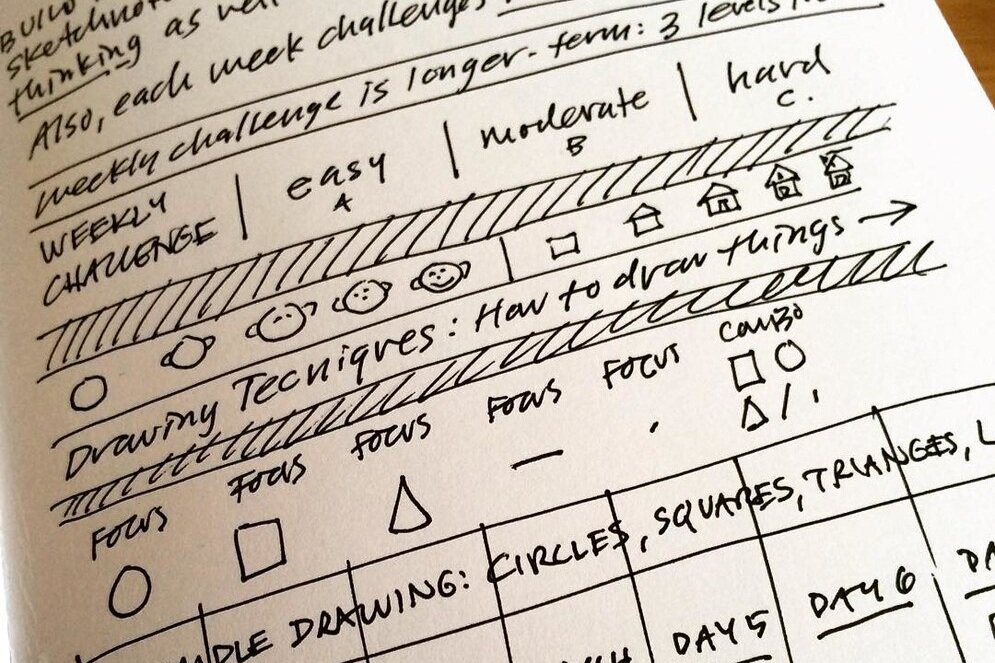 sketchnote
thinking as well
Also, each week challenges
weekly challenge is longer-term: 3 levels
WEEKLY CHALLENGE | easy A | moderate B | hard C.
Drawing Tecniques: How to draw things →
FOCUS FOCUS FOCUS FOCUS FOCUS COMBO
DRAWING: CIRCLES, SQUARES, TRIANGES, L
DAY 5 DAY 6